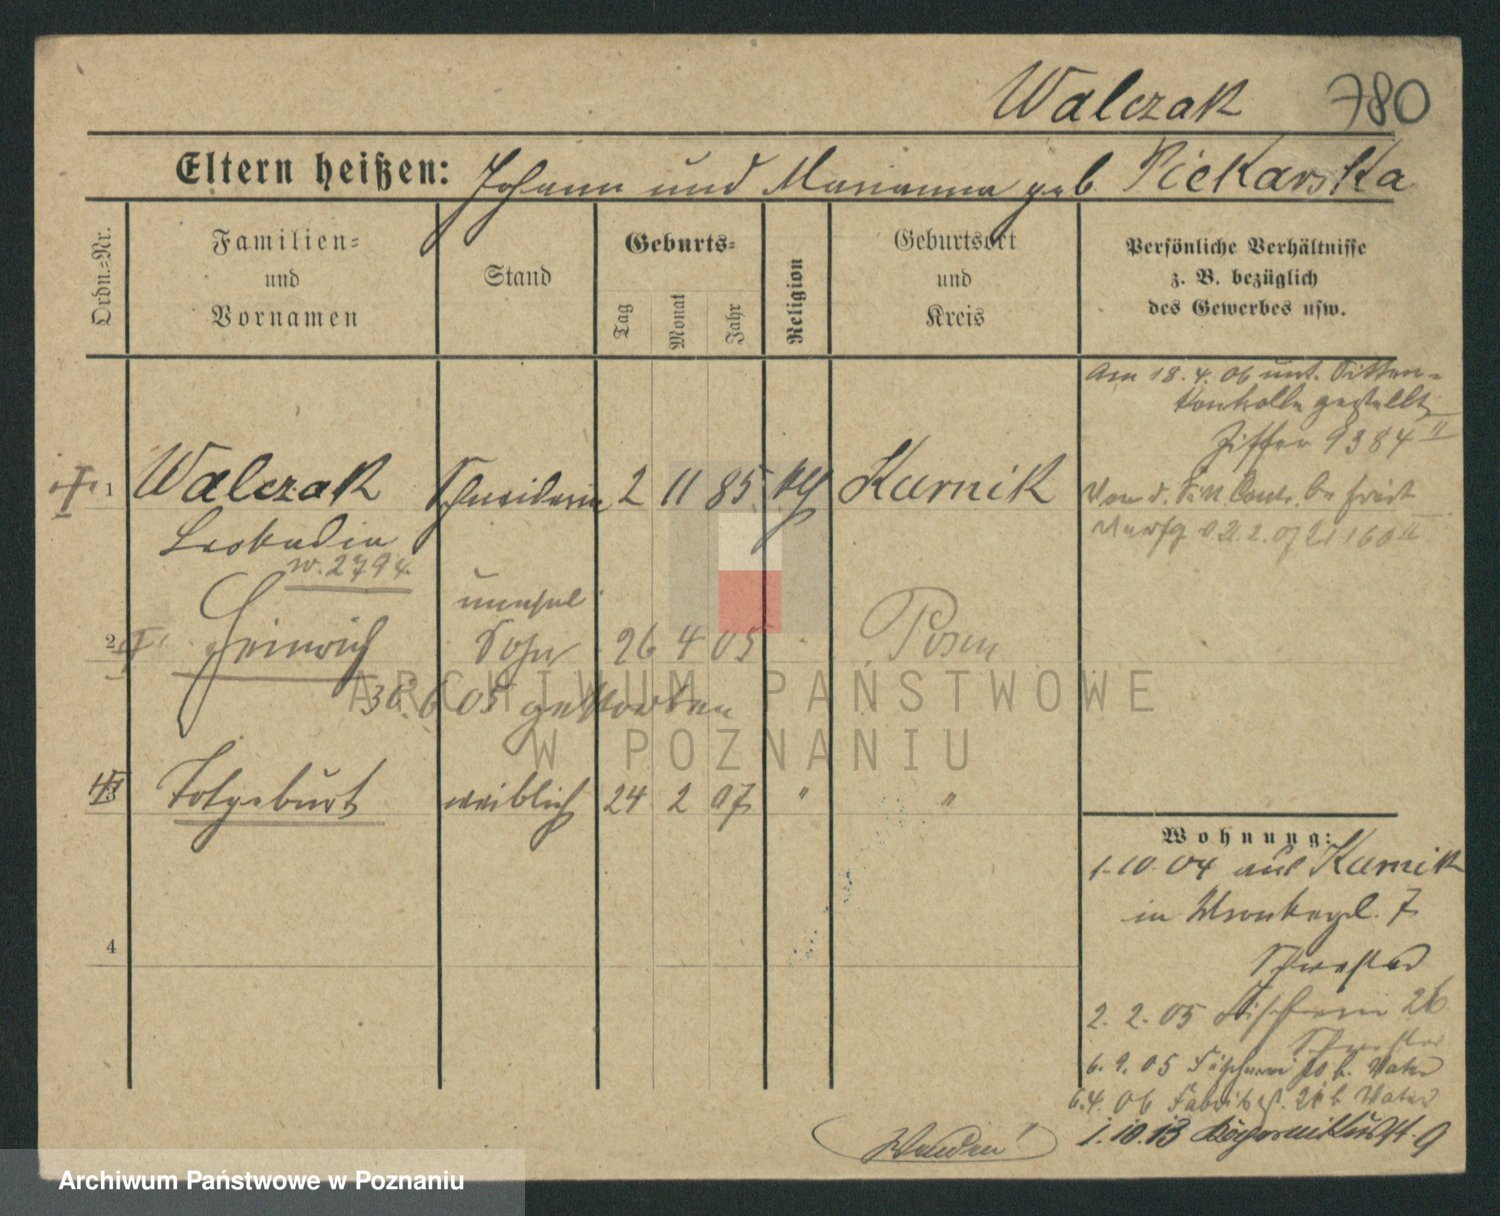 Walczak 780
Eltern heißen: Johann und Marianna geb. Piekarska
Ordn.-Nr.
Familien-
und
Vornamen
Stand
Geburts-
Tag
Monat
Jahr
Religion
Geburtsort
und
Kreis
Persönliche Verhältnisse
z. B. bezüglich
des Gewerbes usw.
Am 18.4.06 unt. Sitten-
kontrolle gestellt
Ziffer 9384 II
1 Walczak Schneiderin 2 11 85 kth Kurnik
Leokadia
w. 2794
Von d. Sitt. Contr. befreit
Verfg v 21.2.07
unehel
2 Heinrich Sohn 26 4 05 Posen
30.6 05 gestorben
3 Totgeburt weiblich 24 2 07 " "
4
Wohnung:
1.10.04 aus Kurnik
in Wronkerpl. 7
Schwester
2.2.05 Fischerei 26
Schwester
6.9.05 Fischerei 20 b. Vater
6.4.06 Fabrikst. 21 b Vater
1.10.13 9
Wenden!
ARCHIWUM PAŃSTWOWE
W POZNANIU
Archiwum Państwowe w Poznaniu